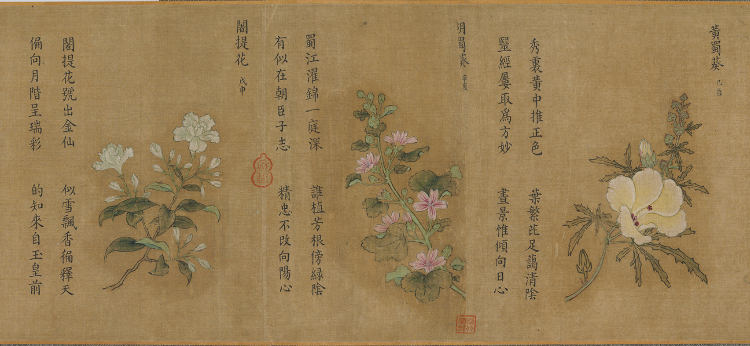 黃蜀葵 己酉
秀裹黃中推正色 葉繁茂足藹清陰
毉經屢取為方妙 晝景惟傾向日心
蜀葵 辛亥
蜀江濯錦一庭深 誰植芳根傍綠陰
有似在朝臣子志 精忠不改向陽心
闍提花 戊申
闍提花號出金仙 似雪飄香徧釋天
偏向月階呈瑞彩 的知來自玉皇前